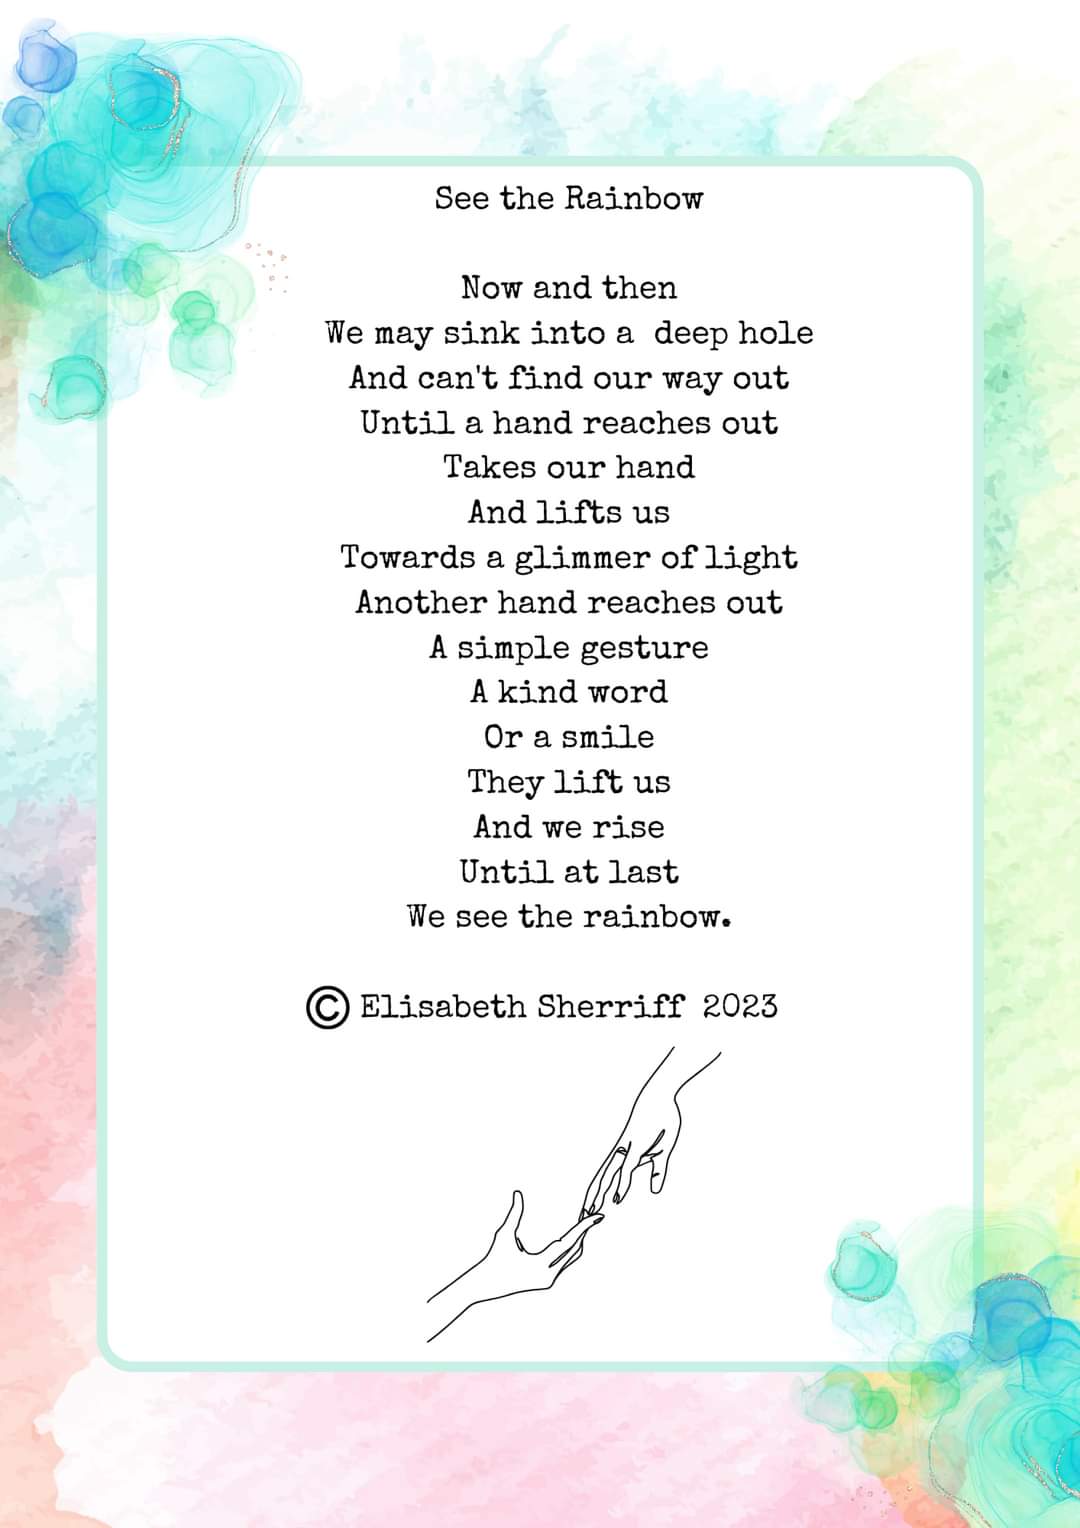 See the Rainbow
Now and then
We may sink into a  deep hole
And can't find our way out
Until a hand reaches out
Takes our hand
And lifts us
Towards a glimmer of light
Another hand reaches out
A simple gesture
A kind word
Or a smile
They lift us
And we rise
Until at last
We see the rainbow.
© Elisabeth Sherriff  2023